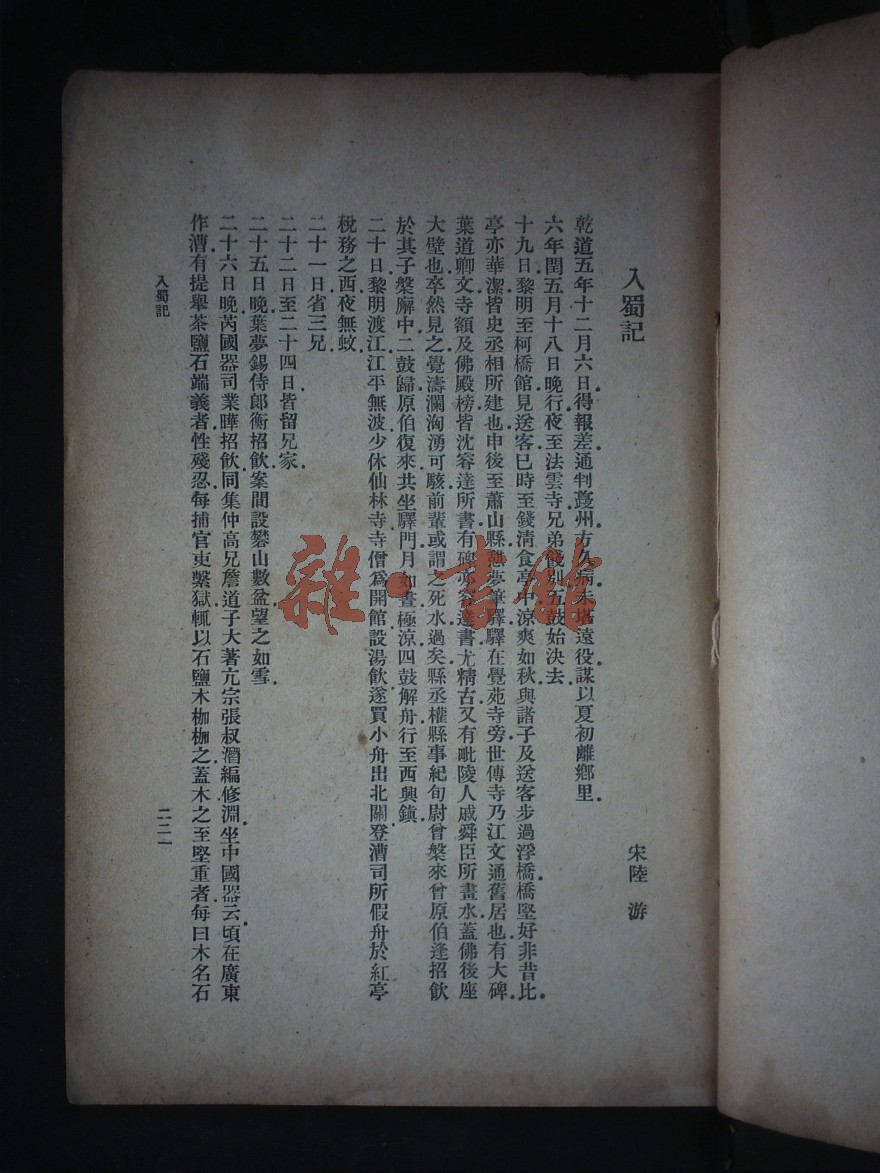 入蜀記
宋陸 游
乾道五年十二月六日得報差通判夔州方久病未堪遠役謀以夏初離鄉里
六年閏五月十八日晚行夜至法雲寺兄弟餞別五鼓始決去
十九日黎明至柯橋館見送客巳時至錢清食亭中涼爽如秋與諸子及送客步過浮橋橋堅好非昔比
亭亦華潔皆史丞相所建也申後至蕭山縣憩夢筆驛驛在覺苑寺旁世傳寺乃江文通舊居也有大碑
葉道卿文寺額及佛殿榜皆沈睿達所書有碑亦睿達書尤精古又有毗陵人戚舜臣所畫水蓋佛後座
大壁也卒然見之覺濤瀾洶湧可駭前輩或謂之死水過矣縣丞權縣事紀旬尉曾槃來曾原伯逢招飲
於其子槃廨中二鼓歸原伯復來共坐驛門月如晝極涼四鼓解舟行至西興鎮
二十日黎明渡江江平無波少休仙林寺寺僧爲開館設湯飲遂買小舟出北關登漕司所假舟於紅亭
稅務之西夜無蚊
二十一日省三兄
二十二日至二十四日皆留兄家
二十五日晚葉夢錫侍郎衡招飲案間設礬山數盆望之如雪
二十六日晚芮國器司業曄招飲同集仲高兄詹道子大著亢宗張叔潛編修淵坐中國器云頃在廣東
作漕有提舉茶鹽石端義者性殘忍每捕官吏繫獄輒以石鹽木枷枷之蓋木之至堅重者每曰木名石
入蜀記
二二一
雜·書館